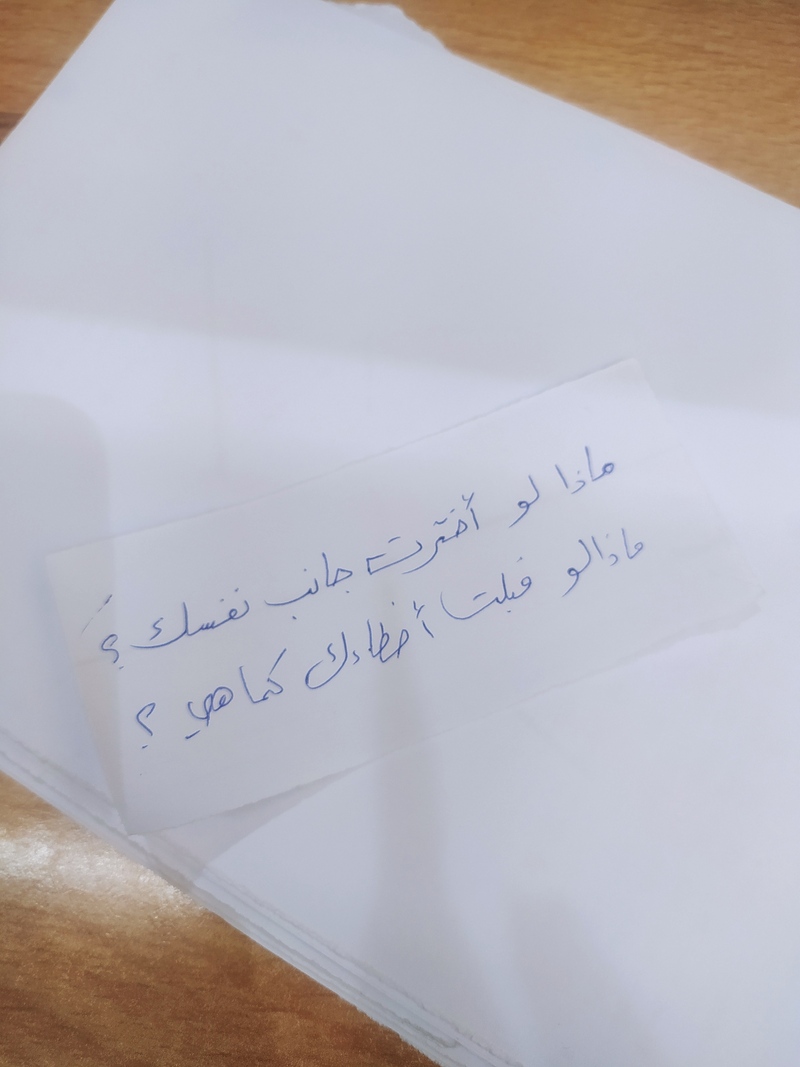 ماذا لو أخترت جانب نفسك ؟
ماذالو قبلت أخطاءك كما هي ؟